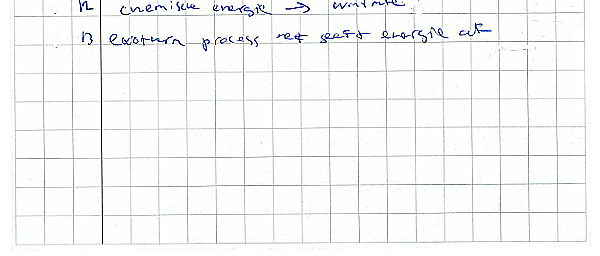 12 chemische energie → warmte
13 exotherm process het geeft energie af